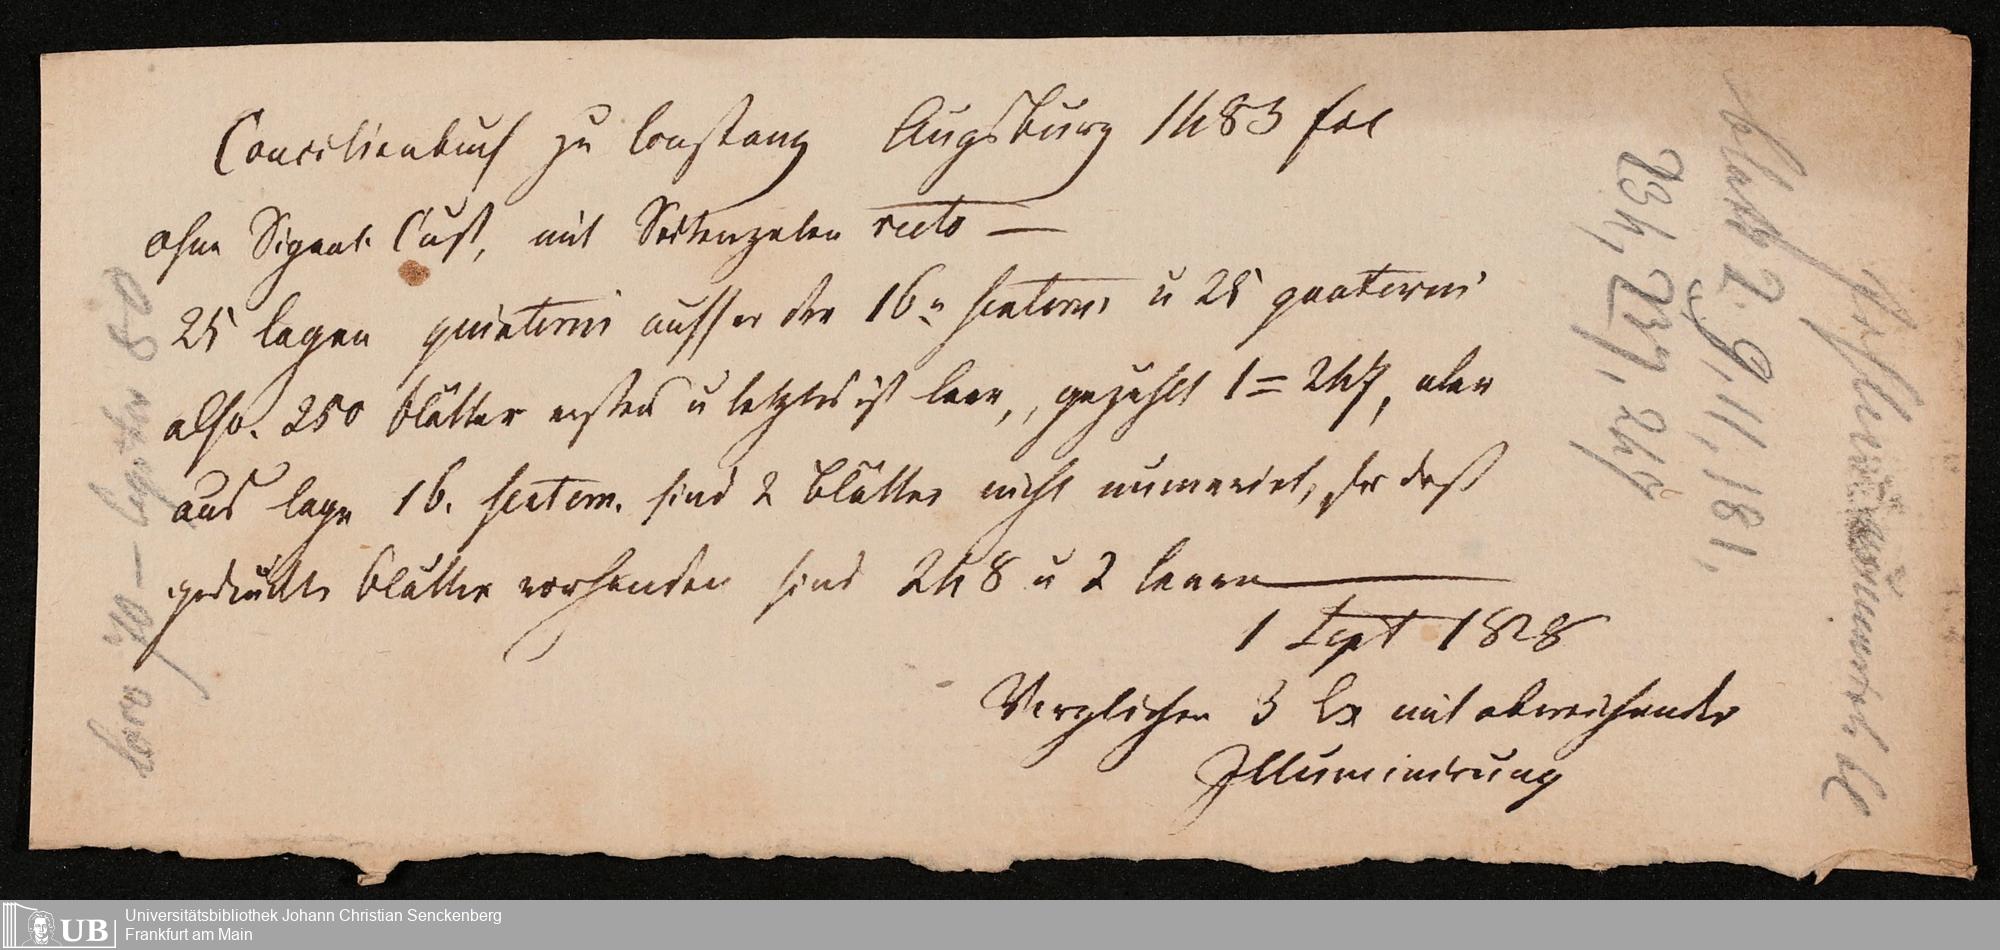 Concilienbuch zu Constanz Augsburg 1483 fol
ohne Signat. Cust, mit Seitenzalen recto —
25 lagen quinterni ausser der 16n sextern u 25 quaterni
also. 250 blätter erstes u letztes ist leer, gezehlt 1=247, aber
aus lage 16. sextern. sind 2 blätter nicht numerirt, so daß
gedruckte blätter vorhanden sind 248 u 2 leere
1 Sept 1828
Verglichen 3 Ex mit abweichender
Illuminirung
blatt 2. 9, 11, 181,
234, 237, 249
70 — 80
UB Universitätsbibliothek Johann Christian Senckenberg
Frankfurt am Main